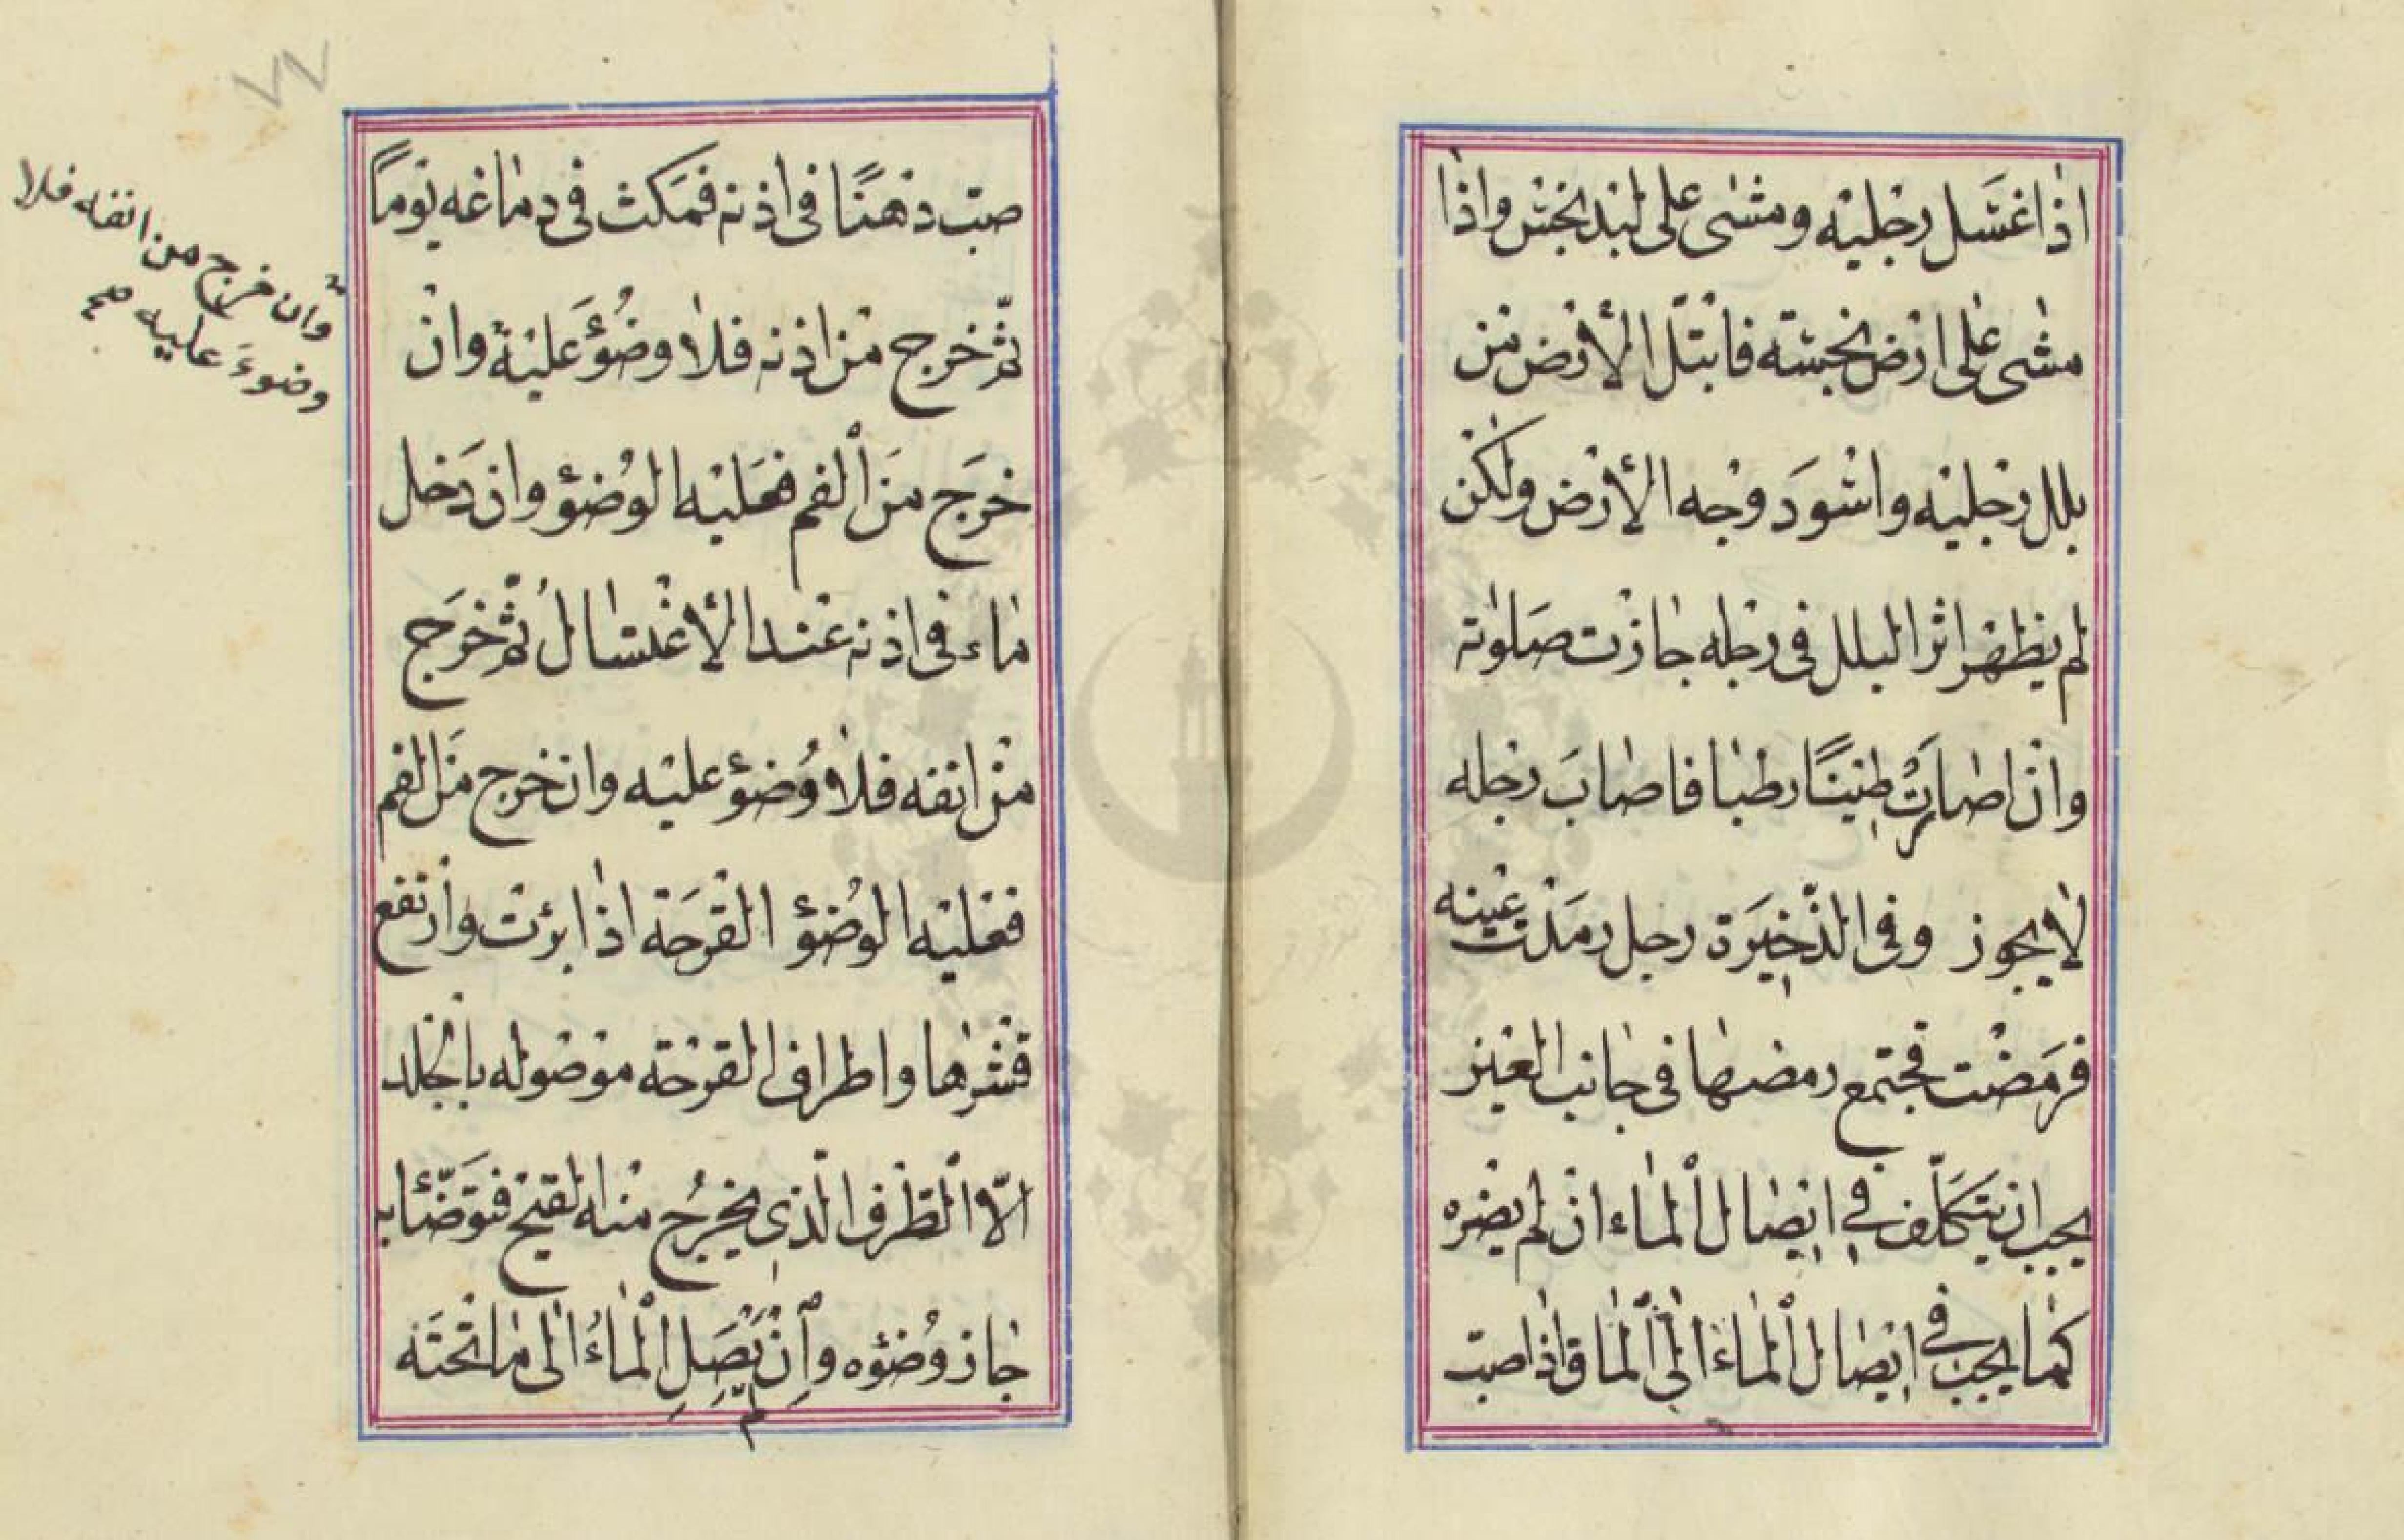 اذا غسل رجليه ومشى على لبد نجس واذا
مشى على ارض نجسته فابتلّ الأرض من
بلل رجليه واسود وجه الأرض ولكن
لم يظهر اثر البلل فى رجله جازت صلوته
وان اصارت طينًا رطبا فاصاب رجله
لا يجوز وفى الذّخيرة رجل رمدت عينه
فرمضت فجتمع رمضها فى جانب العين
يجب ان يتكلّف في ايصال الماء ان لم يضره
كما يجب في ايصال الماء الى الماق واذا صبت
صبت دهنًا فى اذنه فمكث فى دماغه يومًا
ثمّ خرج من اذنه فلا وضؤ عليه وان
خرج من الفم فعليه الوضؤ وان دخل
ماء فى اذنه عند الأغتسال ثمّ خرج
من انفه فلا وضؤ عليه وان خرج من الفم
فعليه الوضؤ القرحة اذا برئت وارتفع
قشرها واطراف القرحة موضوله بالجلد
الّا الطرف الّذى يخرج منه القيح فتوضّئا به
جاز وضؤه وان لم يصل الماء الى ما تحته
وان خرج من انفه فلا
وضوء عليه صح